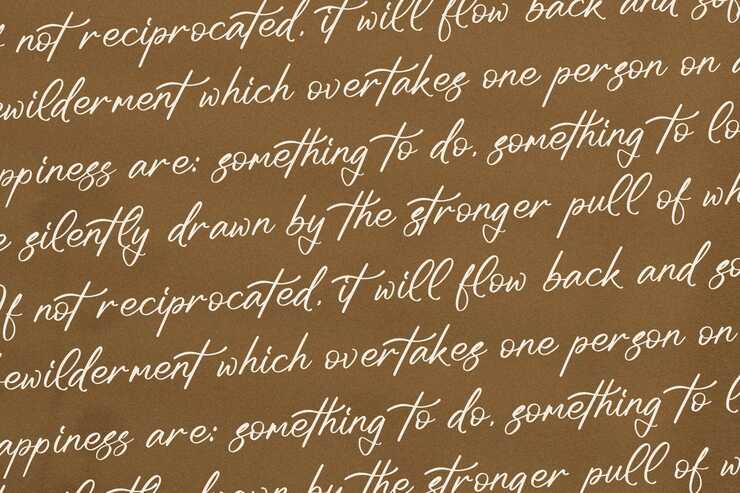 f not reciprocated, it will flow back and sof
ewilderment which overtakes one person on a
ppiness are: something to do, something to lo
e silently drawn by the stronger pull of wh
If not reciprocated, it will flow back and so
bewilderment which overtakes one person on
appiness are: something to do, something to l
silently drawn by the stronger pull of w